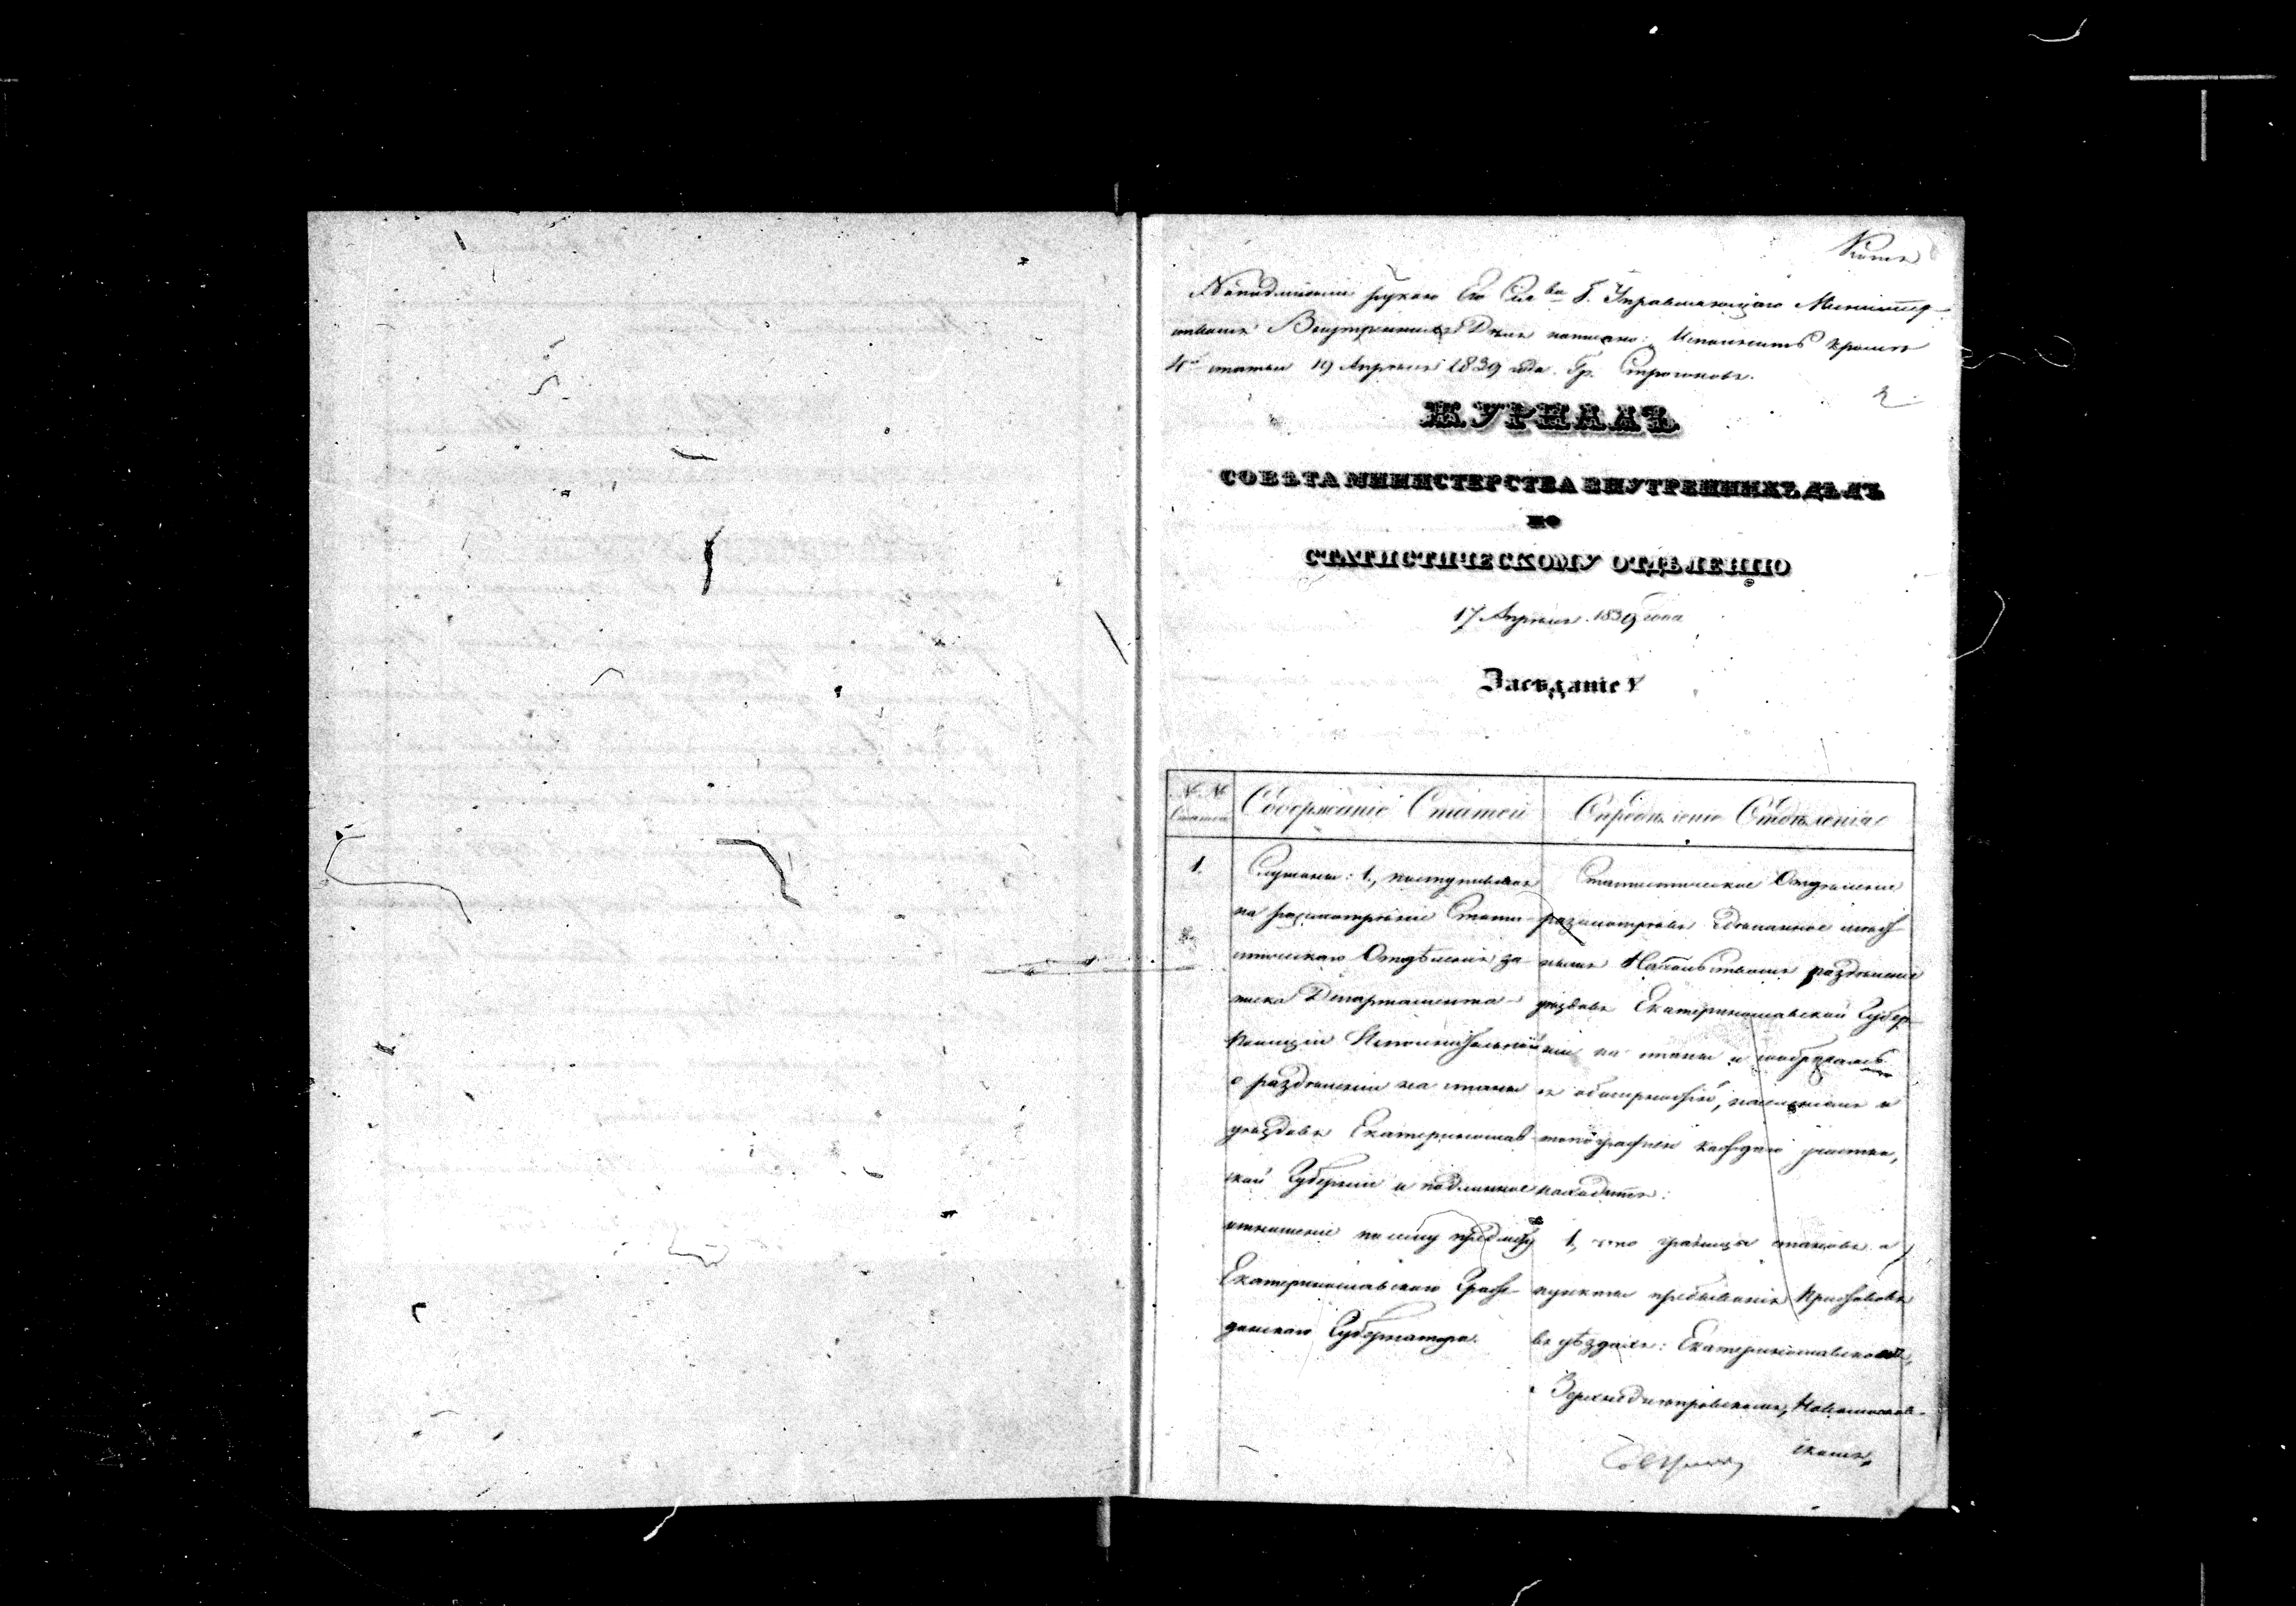 Копія
На подлинномъ рукою Его Сія-ва Г. Управляющаго Министер-
ствомъ Внутреннихъ Дѣлъ написано: Исполнить кромѣ
4й статьи 19 Апрѣля 1839 года. Гр. Строгоновъ.
2
ЖУРНАЛЪ
СОВѢТА МИНИСТЕРСТВА ВНУТРЕННИХЪ ДѢЛЪ
ПО
СТАТИСТИЧЕСКОМУ ОТДѢЛЕНІЮ
17 Апрѣля 1839 года
Засѣданіе V
№ №
Статей
Содержаніе Статей
Опредѣленіе Отдѣленія
1.
Слушали: 1., поступившее
на разсмотрѣніе Стати-
стическаго Отдѣленія за-
писка Департамента
Полиціи Исполнительной
о раздѣленіи на станы
уѣздовъ Екатеринослав-
ской Губерніи и подлинное
отношеніе по сему предмету
Екатеринославскаго Граж-
данскаго Губернатора.
Статистическое Отдѣленіе
разсмотрѣвъ сдѣланное мѣст-
нымъ Начальствомъ раздѣленіе
уѣздовъ Екатеринославской Губер-
ніи на станы и сообразивъ
съ обширностію, населеніемъ и
топографіею каждаго участка,
находитъ:
1., что границы становъ и
пункты пребыванія Приставовъ
въ уѣздахъ: Екатеринославскомъ,
Верхнеднѣпровскомъ, Новомосков-
скомъ,